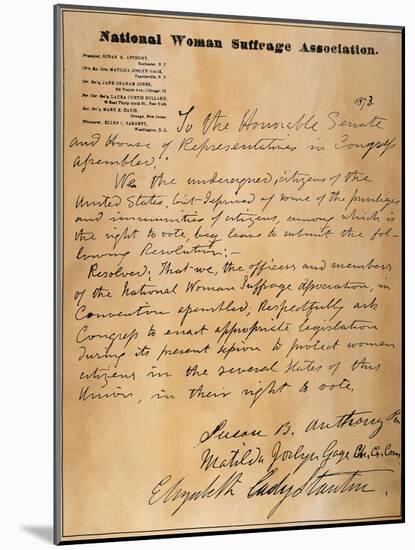 National Woman Suffrage Association.
President, SUSAN B. ANTHONY,
Rochester, N.Y.
Ch'n Ex. Com. MATILDA JOSLYN GAGE,
Fayetteville, N.Y.
Cor. Sec'y, JANE GRAHAM JONES,
910 Prairie Ave., Chicago, Ill
For. Cor. Sec'y, LAURA CURTIS BULLARD,
East Thirty-ninth St., New York
Rec. Sec'y, MARY F. DAVIS,
Orange, New Jersey
Treasurer, ELLEN C. SARGENT,
Washington, D.C.
1873.
To the Honorable Senate
and House of Representatives in Congress
assembled:
We the undersigned, citizens of the
United States, but deprived of some of the privileges
and immunities of citizens, among which is
the right to vote, beg leave to submit the fol-
lowing Resolution:-
Resolved; That we, the officers and members
of the National Woman Suffrage Association, in
Convention assembled, Respectfully ask
Congress to enact appropriate legislation
during its present session to protect women
citizens in the several States of this
Union, in their right to vote.
Susan B. Anthony
Matilda Joslyn Gage Ch. Ex. Com
Elizabeth Cady Stanton.